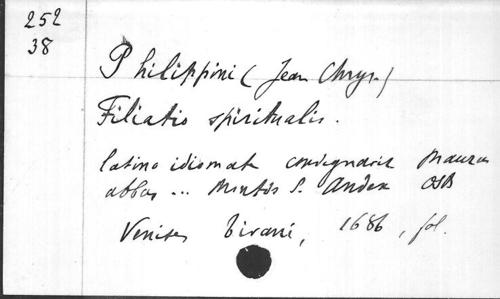 252
38
Philippini (Jean Chrys.)
Filiatio spiritualis.
latino idiomate consignavit Maurus
abbas ... Montis S. Andex OSB
Venise, Tivani, 1686, fol.